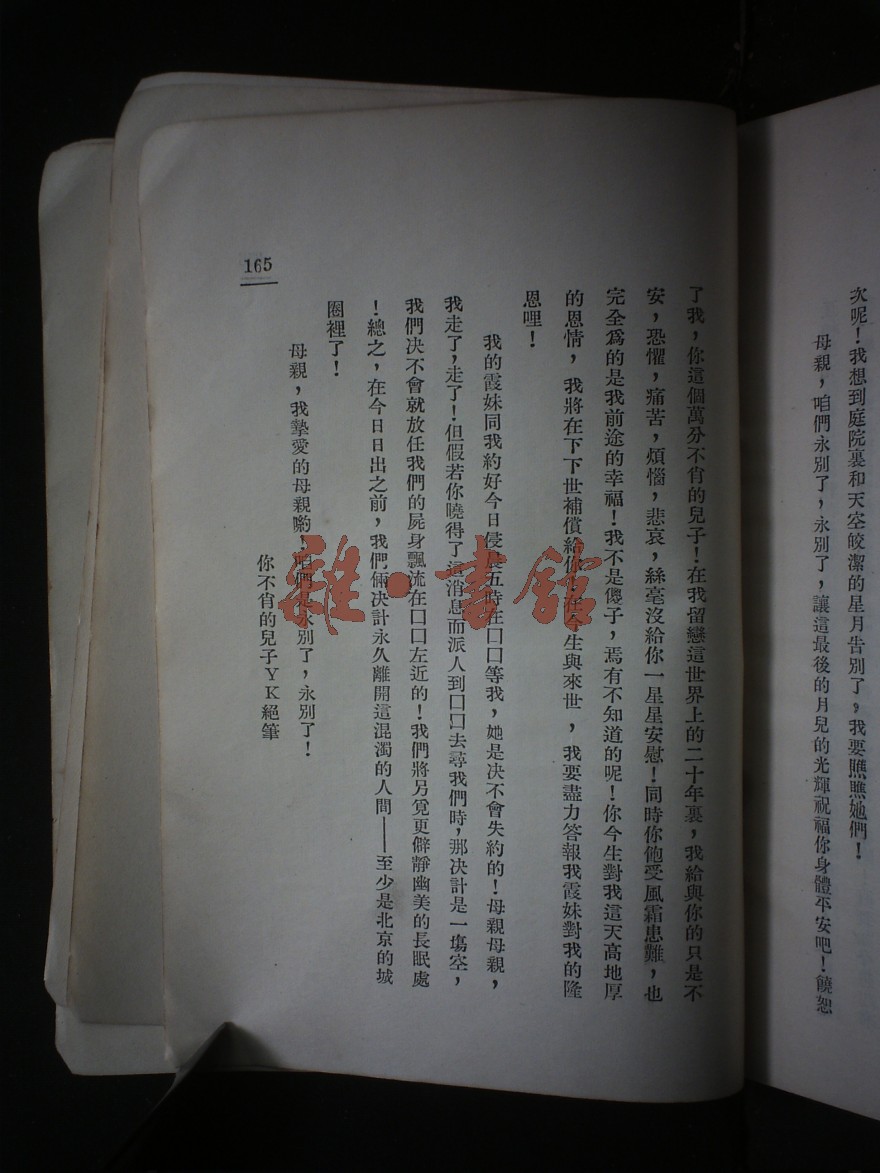 次呢！我想到庭院裏和天空皎潔的星月告別了，我要瞧瞧她們！
母親，咱們永別了，永別了，讓這最後的月兒的光輝祝福你身體平安吧！饒恕
了我，你這個萬分不肖的兒子！在我留戀這世界上的二十年裏，我給與你的只是不
安，恐懼，痛苦，煩惱，悲哀，絲毫沒給你一星星安慰！同時你飽受風霜患難，也
完全爲的是我前途的幸福！我不是傻子，焉有不知道的呢！你今生對我這天高地厚
的恩情，我將在下下世補償給你！在今生與來世，我要盡力答報我霞妹對我的隆
恩哩！
我的霞妹同我約好今日侵晨五時在口口等我，她是决不會失約的！母親母親，
我走了，走了！但假若你曉得了這消息而派人到口口去尋我們時，那决計是一塲空，
我們决不會就放任我們的屍身飄流在口口左近的！我們將另覓更僻靜幽美的長眠處
！總之，在今日日出之前，我們倆决計永久離開這混濁的人間——至少是北京的城
圈裡了！
母親，我摯愛的母親喲！咱們是永別了，永別了！
你不肖的兒子YK絕筆
165
雜·書館